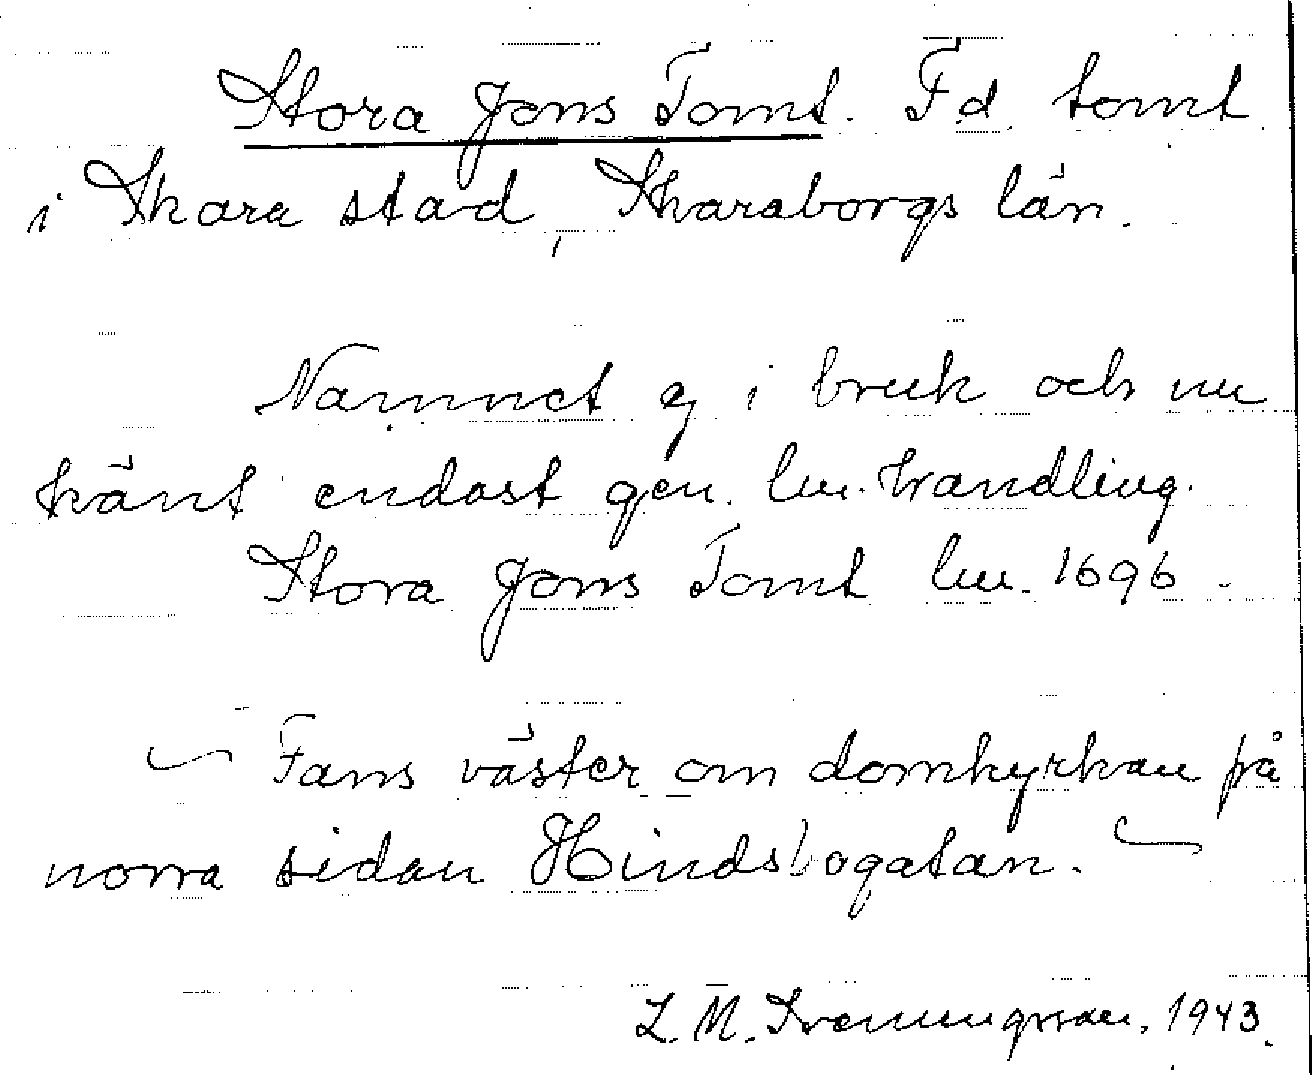 Stora Jons Tomt. F.d. tomt
i Skara stad, Skaraborgs län.
Namnet ej i bruk och nu
känt endast gen. lm. handling.
Stora Jons Tomt lm. 1696.
Fans väster om domkyrkan på
norra sidan Hindsbogatan.
L. M. Svenungsson. 1943.